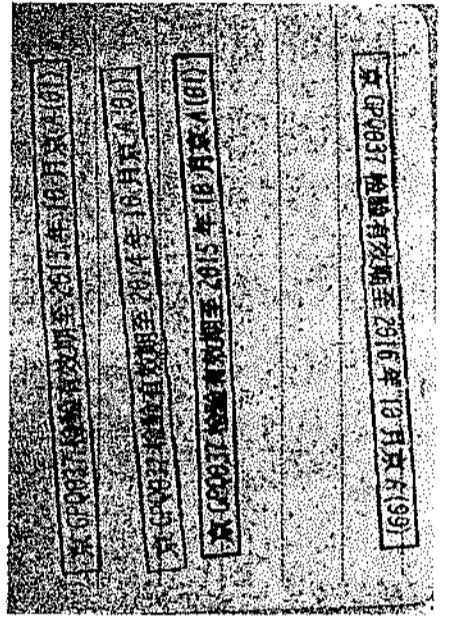 京GPQ037检验有效期至2013年10月京A(01)
京GPQ037检验有效期至2014年10月京A(01)
京GPQ037检验有效期至2015年10月京A(01)
京GPQ037检验有效期至2016年10月京A(99)